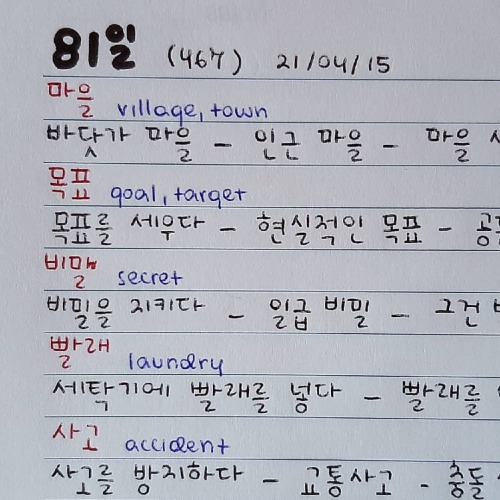 81일 (467) 21/04/15
마을 village, town
바닷가 마을 – 인근 마을 – 마을
목표 goal, target
목표를 세우다 – 현실적인 목표 –
비밀 secret
비밀을 지키다 – 일급 비밀 – 그건
빨래 laundry
세탁기에 빨래를 넣다 – 빨래를
사고 accident
사고를 방지하다 – 교통사고 – 충돌